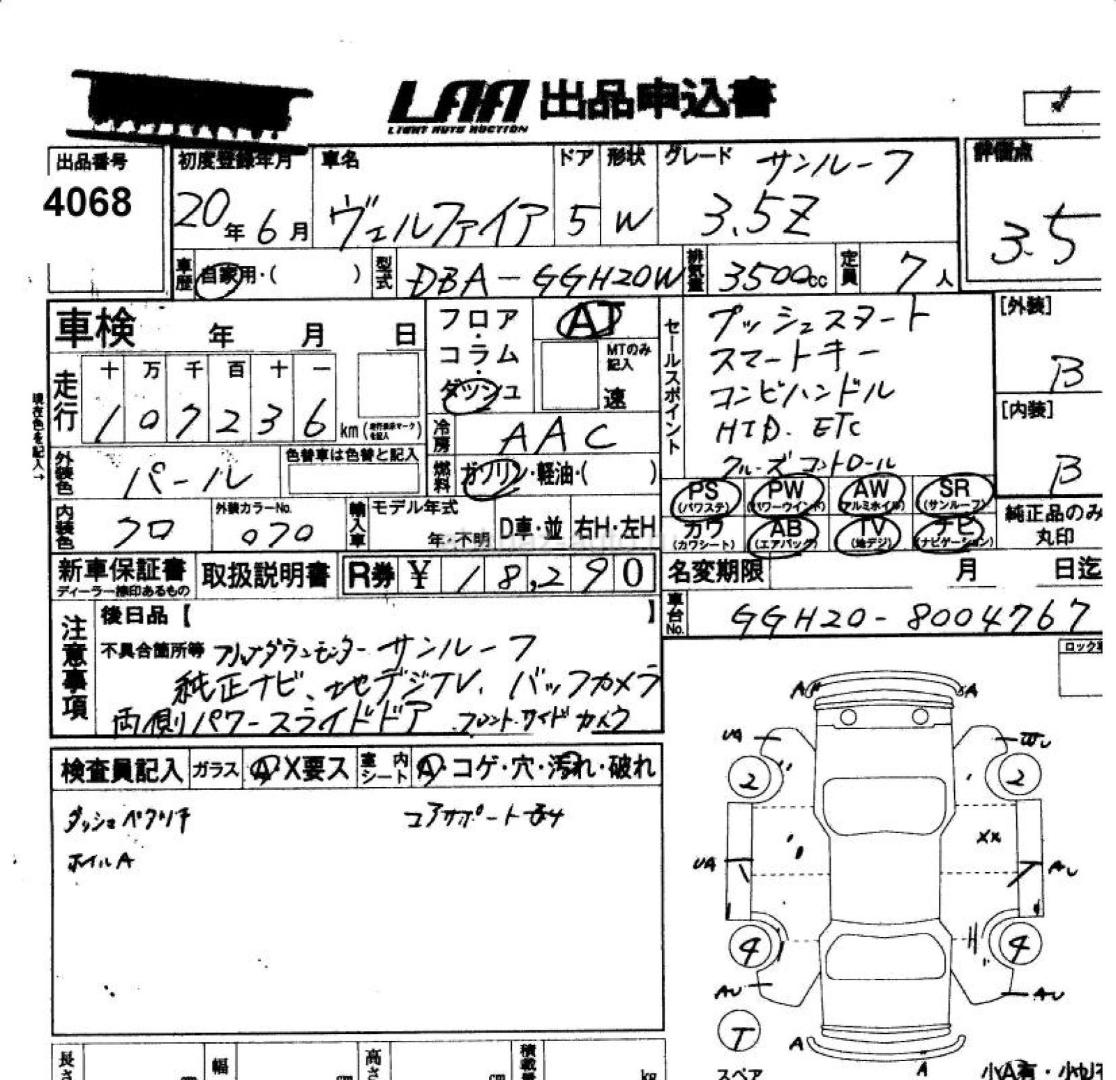 LAA 出品申込書
LIGHT AUTO AUCTION
出品番号 初度登録年月 車名 ドア 形状 グレード サンルーフ 評価点
4068 20年6月 ヴェルファイア 5 W 3.5Z 3.5
車歴 自家用・( ) 型式 DBA-GGH20W 排気量 3500cc 定員 7人
車検 年 月 日 フロア・コラム・ダッシュ AT セールスポイント プッシュスタート [外装]
走行 十万千百十一 MTのみ記入 速 スマートキー B
現在色を記入→ 107236 km コンビハンドル [内装]
冷房 AAC HID. ETC B
外装色 パール 色替車は色替と記入 燃料 ガソリン・軽油・( ) クルーズコントロール
PS (パワステ) PW (パワーウインド) AW (アルミホイル) SR (サンルーフ) 純正品のみ
内装色 クロ 外装カラーNo. 070 輸入車 モデル年式 年・不明 D車・並 右H・左H カワ (カワシート) AB (エアバッグ) TV (地デジ) ナビ (ナビゲーション) 丸印
新車保証書 ディーラー捺印あるもの 取扱説明書 R券 ¥ 18,290 名変期限 月 日迄
注意事項 後日品【 】 車台No. GGH20-8004767
不具合箇所等 フリップダウンモニター サンルーフ ロック
純正ナビ、地デジTV、バックカメラ
両側パワースライドドア フロント・サイドカメラ
検査員記入 ガラス A・X要ス 室内シート A・コゲ・穴・汚れ・破れ
ホイルA
A A
UA
2 2
XX
UA AU
4 4
AU AU
T A A
スペア 小A有・小
長さ cm 幅 cm 高さ cm 積載量 kg